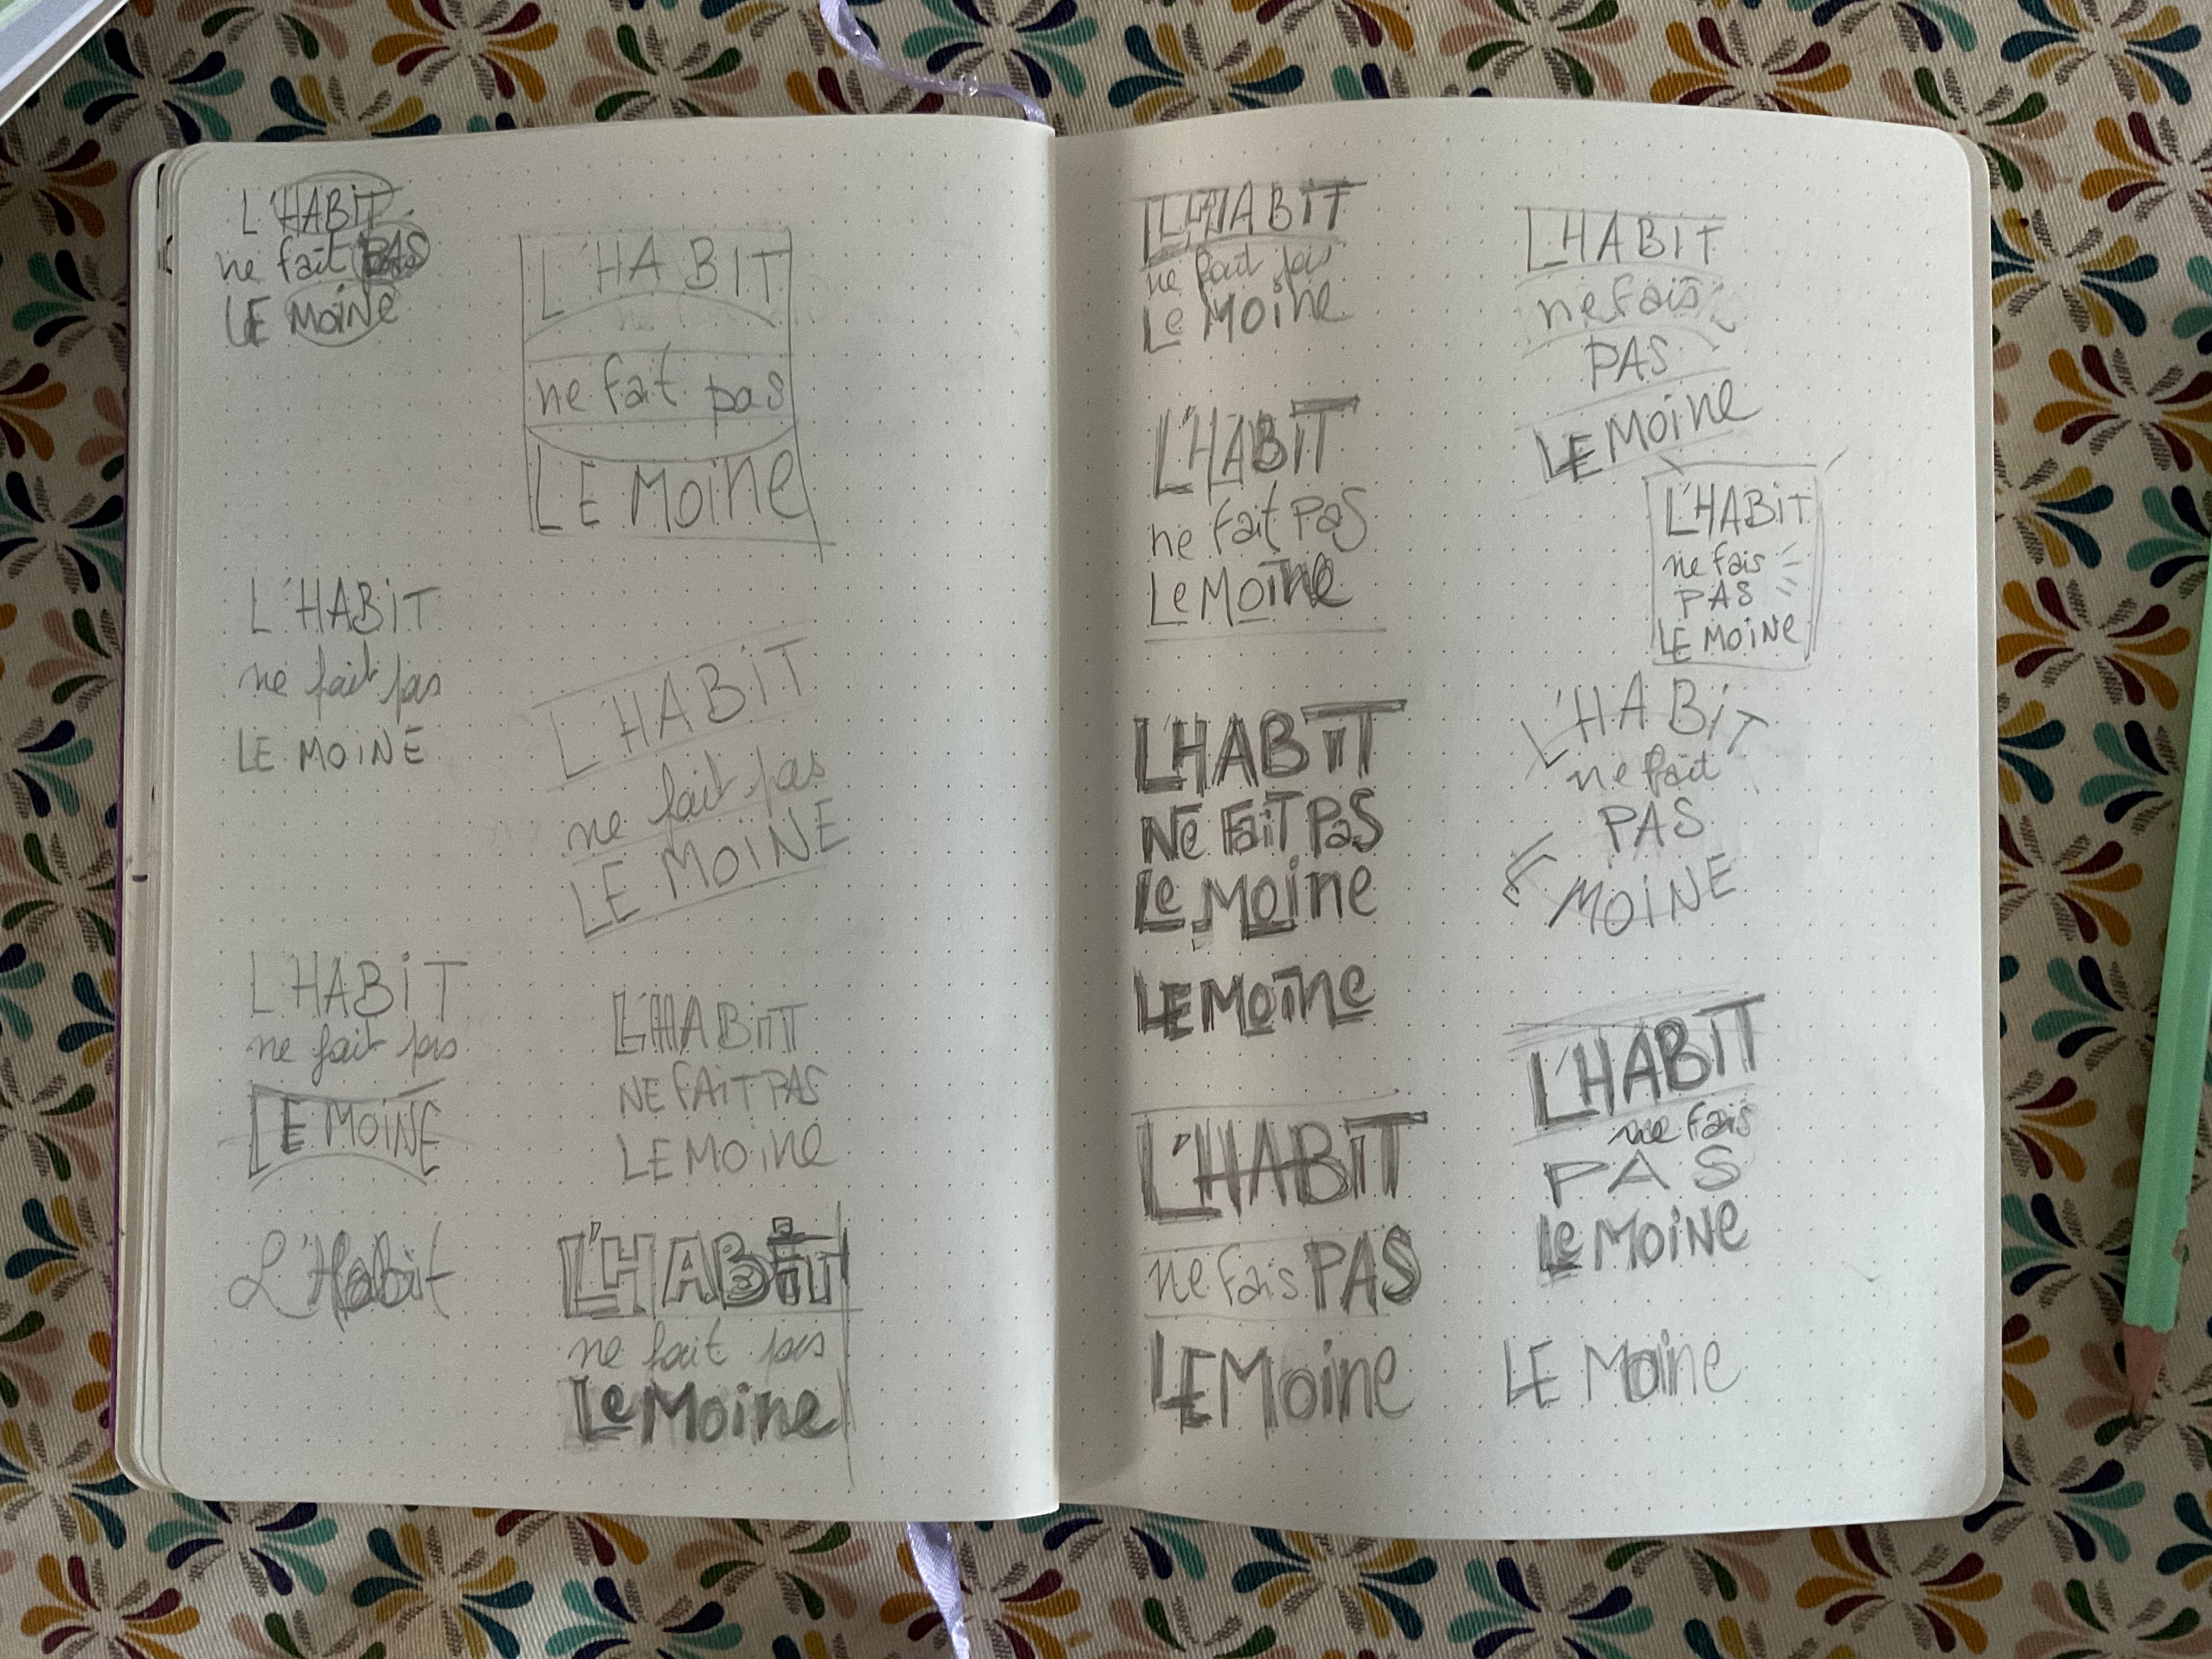 L'HABIT
ne fait PAS
LE MOINE
L'HABIT
ne fait pas
LE MOINE
L'HABIT
ne fait pas
LE MOINE
L'Habit
L'HABIT
ne fat pas
LE MOINE
L'HABIT
ne fait pas
LE MOINE
L'HABIT
NE FAIT PAS
LE MOINE
L'HABIT
ne fait pas
Le Moine
L'HABIT
ne fait pas
Le Moine
L'HABIT
ne fait Pas
Le Moine
LHABIT
Ne FaiT Pas
Le Moine
LE Moine
L'HABIT
ne fais PAS
LE Moine
L'HABIT
ne fais
PAS
LE Moine
L'HABIT
ne fais
PAS
LE MOINE
L'HABIT
ne fait
PAS
LE
MOINE
L'HABIT
ne fais
PAS
Le MOINe
LE Moine